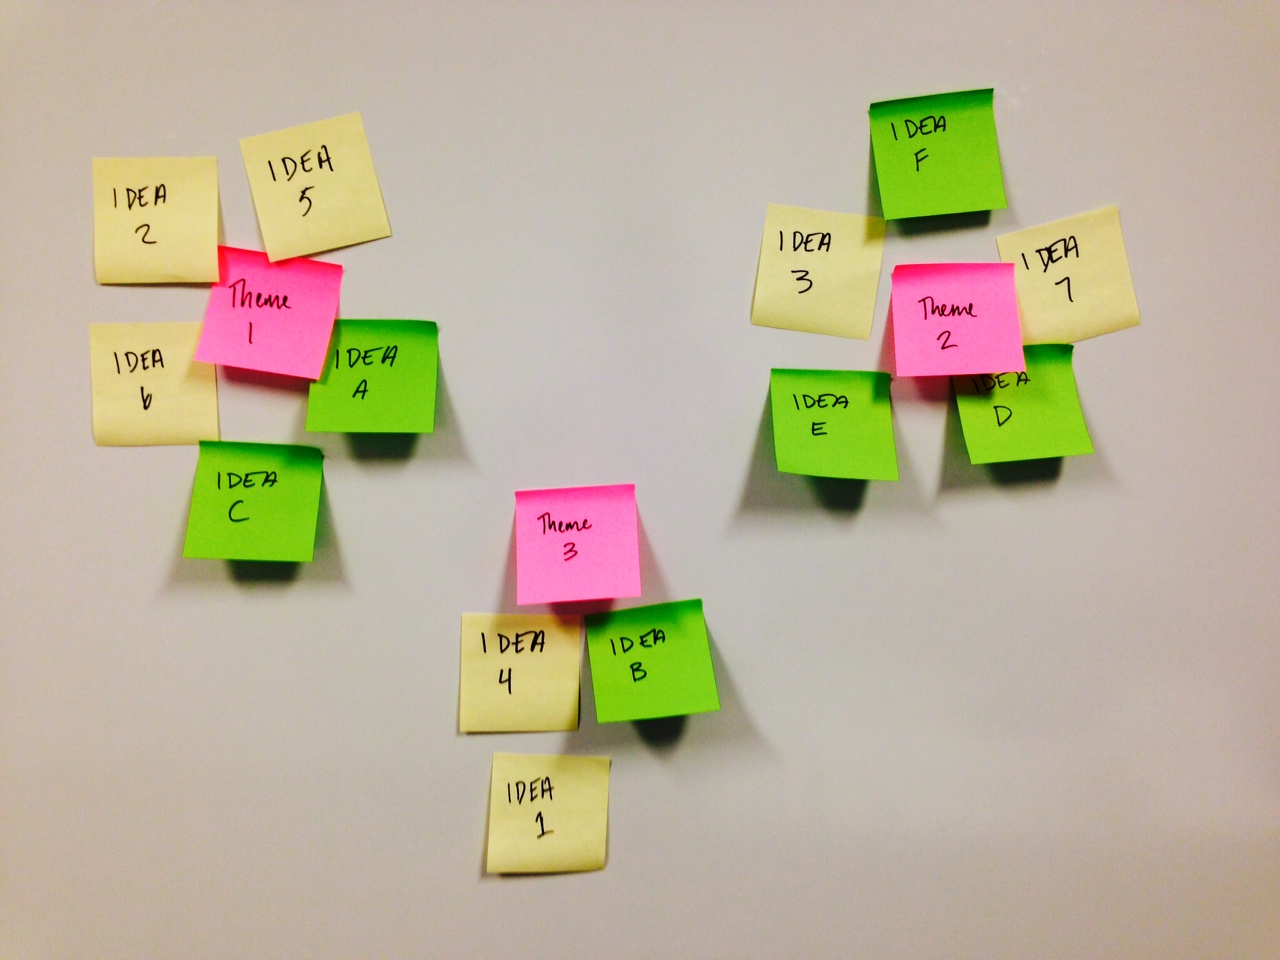 IDEA
2
IDEA
5
Theme
1
IDEA
6
IDEA
A
IDEA
C
IDEA
F
IDEA
3
IDEA
7
Theme
2
IDEA
E
IDEA
D
Theme
3
IDEA
4
IDEA
B
IDEA
1